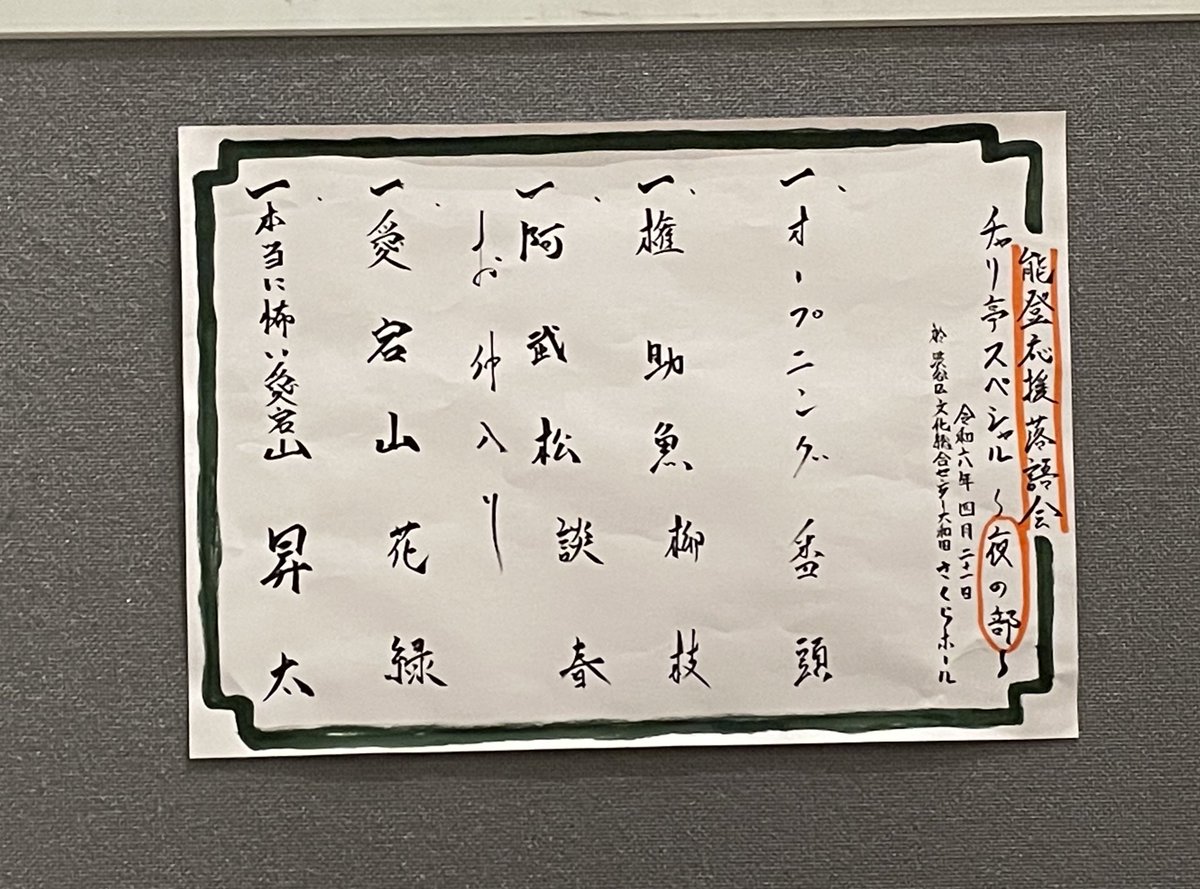 能登応援落語会
チャリ亭スペシャル 〜夜の部〜
令和六年四月二十一日
於 渋谷区文化総合センター大和田 さくらホール
一、オープニング 番頭
一、権助魚 柳枝
一、阿武松 談春
お仲入り
一、愛宕山 花緑
一、本当に怖い愛宕山 昇太